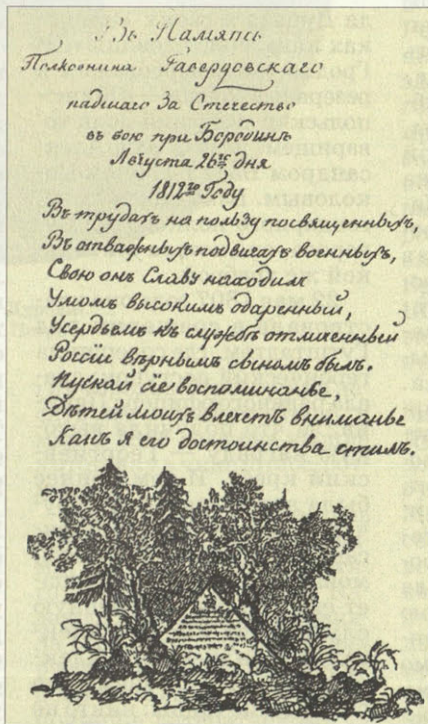 Въ Память
Полковника Гавердовскаго
падшаго За Отечество
въ бою при Бородинѣ
Августа 26го дня
1812го Году
Въ трудахъ на пользу посвященныхъ,
Въ отважныхъ подвигахъ военныхъ,
Свою онъ Славу находилъ
Умомъ высокимъ одаренный,
Усердьемъ къ службѣ отличенный
Россіи вѣрнымъ сыномъ былъ.
Пускай сіе воспоминанье,
Дѣтей моихъ влечетъ вниманье
Какъ я его достоинства чтилъ.